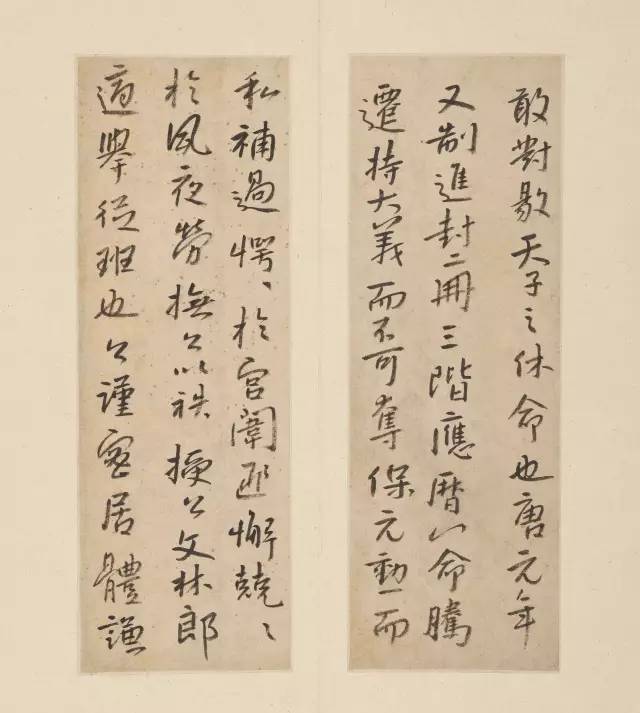 敢對敭天子之休命也唐元年
又制進封二冊三階應曆以命騰
遷持大義而不可奪保元勳而
私補過愕、於宮闈匪懈兢〻
於夙夜勞撫公以袟授公文林郎
適舉從班也公謹密居體謙